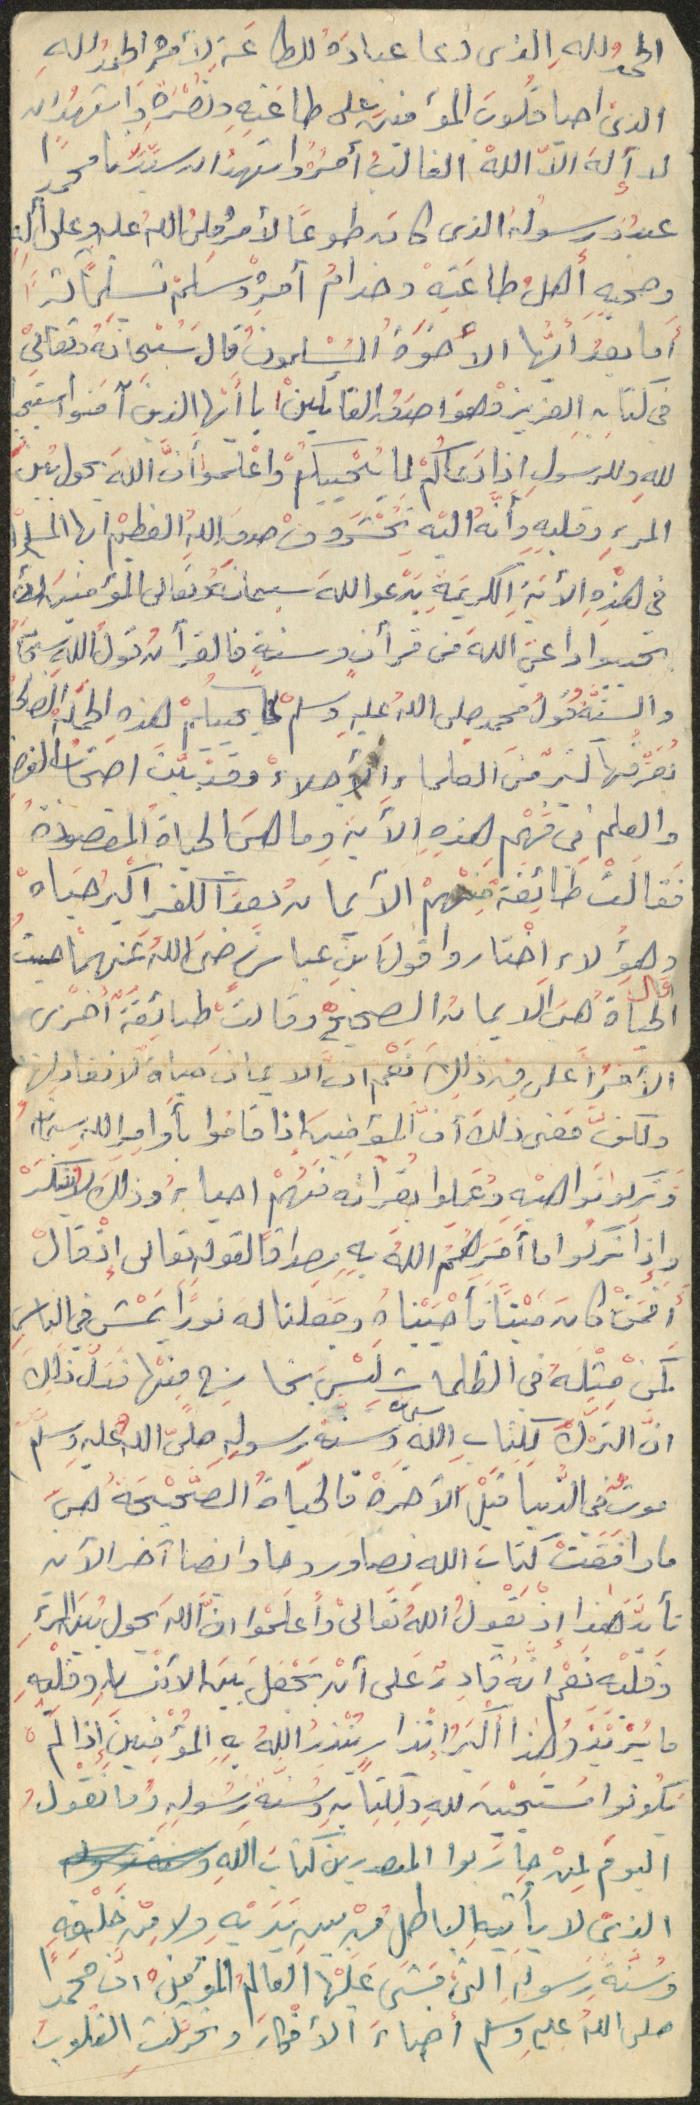 الحمدُ للهِ الذى دعا عبادَهُ للطاعَةِ لأَمْرِهِ الحمدُ للهِ
الذىْ احيا قلُوبَ المؤمنين على طاعَتِهِ ونُصْرَةِ واشهدُ ان
لا إلهَ الاّ اللهْ الغالبُ أمرُهُ واشهدُ ان سيّدَنا محمدًا
عبدُهُ ورسولُهُ الذى كان طوعًا لأمرِهِ صلىْ اللهُ عليهِ وعلى آلِهِ
وصحبِهِ أهلُ طاعَتِهْ وخدامُ أمرِهْ وسَلمْ تسليمًا كثيرًا
أَما بعدُ أيُّها الأخوَةُ المُسْلِمونْ قالَ سُبْحانَهُ وتعالىْ
فى كتابه العزيزْ وهوَ اصدقُ القائلينْ ( يا أَيُّها الذينَ آمَنوا استجيبوا
للهِ وللرسولِ اذا دَعاكُمْ لِما يُحْييكُمْ وَاعْلَموا أَنَّ اللهَ يحول بَيْنَ
المرءِ وقلبِهِ وأَنَّهُ اليْهِ تُحْشَرَونْ صدقَ اللهُ العظيمْ ايها المسلمونْ
فى هذِهِ الأيَةِ الكريمَةِ يَدْعو اللهَ سبحانَهُ وتعالى المؤمنينَ لأن
يجيبوا داعىَ اللهَ من قرأنٍ وسنةٍ فالقرأن قولُ اللهِ سبحانهُ
والسُنَّةُ قَولُ محمدٍ صلى اللهُ عليهِ وسلمْ لما يُحييكمْ هذهِ الجملةْ
يُعَرِّفُها كثيرٌ منَ العلماءِ والأجلاءْ وقدْ بيَّنَ اصحابُ الفضلِ
والعلم فى فَهْمِ هذهِ الأيَةِ وما هىَ الحياةُ المقصودةُ
فَقالَتْ طائِفةٌ مِنْهُمْ الأيمان بعدَ الكفر اكبر حياةْ
وهؤُلاءِ اِخْتاروا قولَ ابْنِ عباسٍ رضىَ اللهُ عَنهما حيثُ
قال
الحياةُ هىَ الايمان الصحيحْ وقالتْ طائِفَةٌ أُخْرى
نَعْم انَّ الايمانَ حياةٌ لانفادَ لها
ولكنَّ معنى ذلكَ أنَّ المؤمنينَ إذا قاموا بأوامِرِ اللهِ سبحانه
وتَركوا نَواهيْهِ وعَملوا بقرأنه فَهُمْ احياءٌ وذلكَ لايُنكَرْ
وإِذا تركُوا ما أَمَرَهُمُ اللهُ بِهِ مصداقًا لقولِه تعالى إذْ قالْ
أَفَمَنْ كانَ مَيْتًا فأَحْيَيْناهُ وجَعلنا لهَ نورًا يَمْشى فى الناسِ
كَمَنْ مَثَلُهُ فى الظلماتِ لَيْسَ بخارجٍ مِنْها فدلَّ ذلكَ
انَّ التَرْكَ لِكتابِ اللهِ وسنةِ رسولِهِ صلىّ الله عليهِ وسلمْ
موتٌ فى الدُّنيا قبْلَ الأخرةْ فالحَياةُ الصَّحيْحَةُ هىَ
ما وافَقَتْ كتابَ الله نصا وروحا وايضا آخر الأيه
تأيَّدَ هذا إِذْ يَقُولُ اللهُ تَعالىْ وأعلَموا انَّ اللهَ يحول بيْنَ المرْءِ
وقلبْهِ نَعْم انَّهُ قادِرٌ عَلى أنْ يَجْعَلَ بَيْنَ الأنْسانِ وقلْبِهِ
ما يُرْيدُ وهذا أكْبَرُ انْذارٍ يُنْذِرُ اللهُ بِهِ المُؤْمِنينَ إذا لَمْ
يَكُونوا مُسْتَجيبينَ للهِ ولِكتابِهِ وسُنةِ رَسُولِهِ وما نَقُولُ
اليومَ لِمَنْ حارَبوا كتابَ اللهِ
الذِىْ لا يأتيهِ الباطلُ مِنْ بينِ يَدَيْهِ ولا مِنْ خَلْفِهِ
وسُنةِ رَسُولِهِ التىْ مَشى عَليْها العالمُ المؤمِنْ انَّ محمدًا
صلى اللهُ عليهِ وسلم أحياءَ الأفكارَ وتحرّكتْ القلوبُ